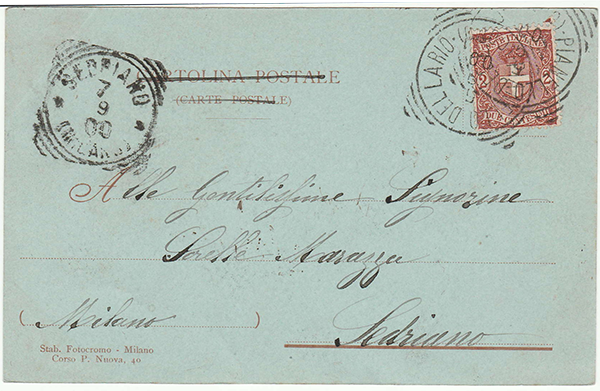 SEDRIANO
7
9
00
(MILANO)
CARTOLINA POSTALE
(CARTE POSTALE)
POSTE ITALIANE
2 2
DUE CENTESIMI
DEL LARIO
Alle Gentilissime Signorine
Sorelle Marazza
(Milano)
Sedriano
Stab. Fotocromo - Milano
Corso P. Nuova, 40